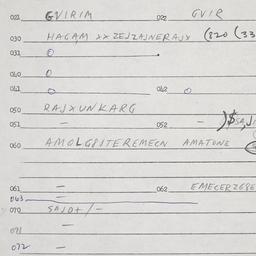 021 GVIRIM 022 GVIR
030 HAGAM XX ZEJZAJNERAJX (320 (33
031 0
040 0
041 0 042 0
050 RAJXUNKARG
051 — 052 —
060 AMOLGPJTEREMECN AMATONE
061 — 062 EMECERZGBE
063 —
070 SAJD+/-
071 —
072 —